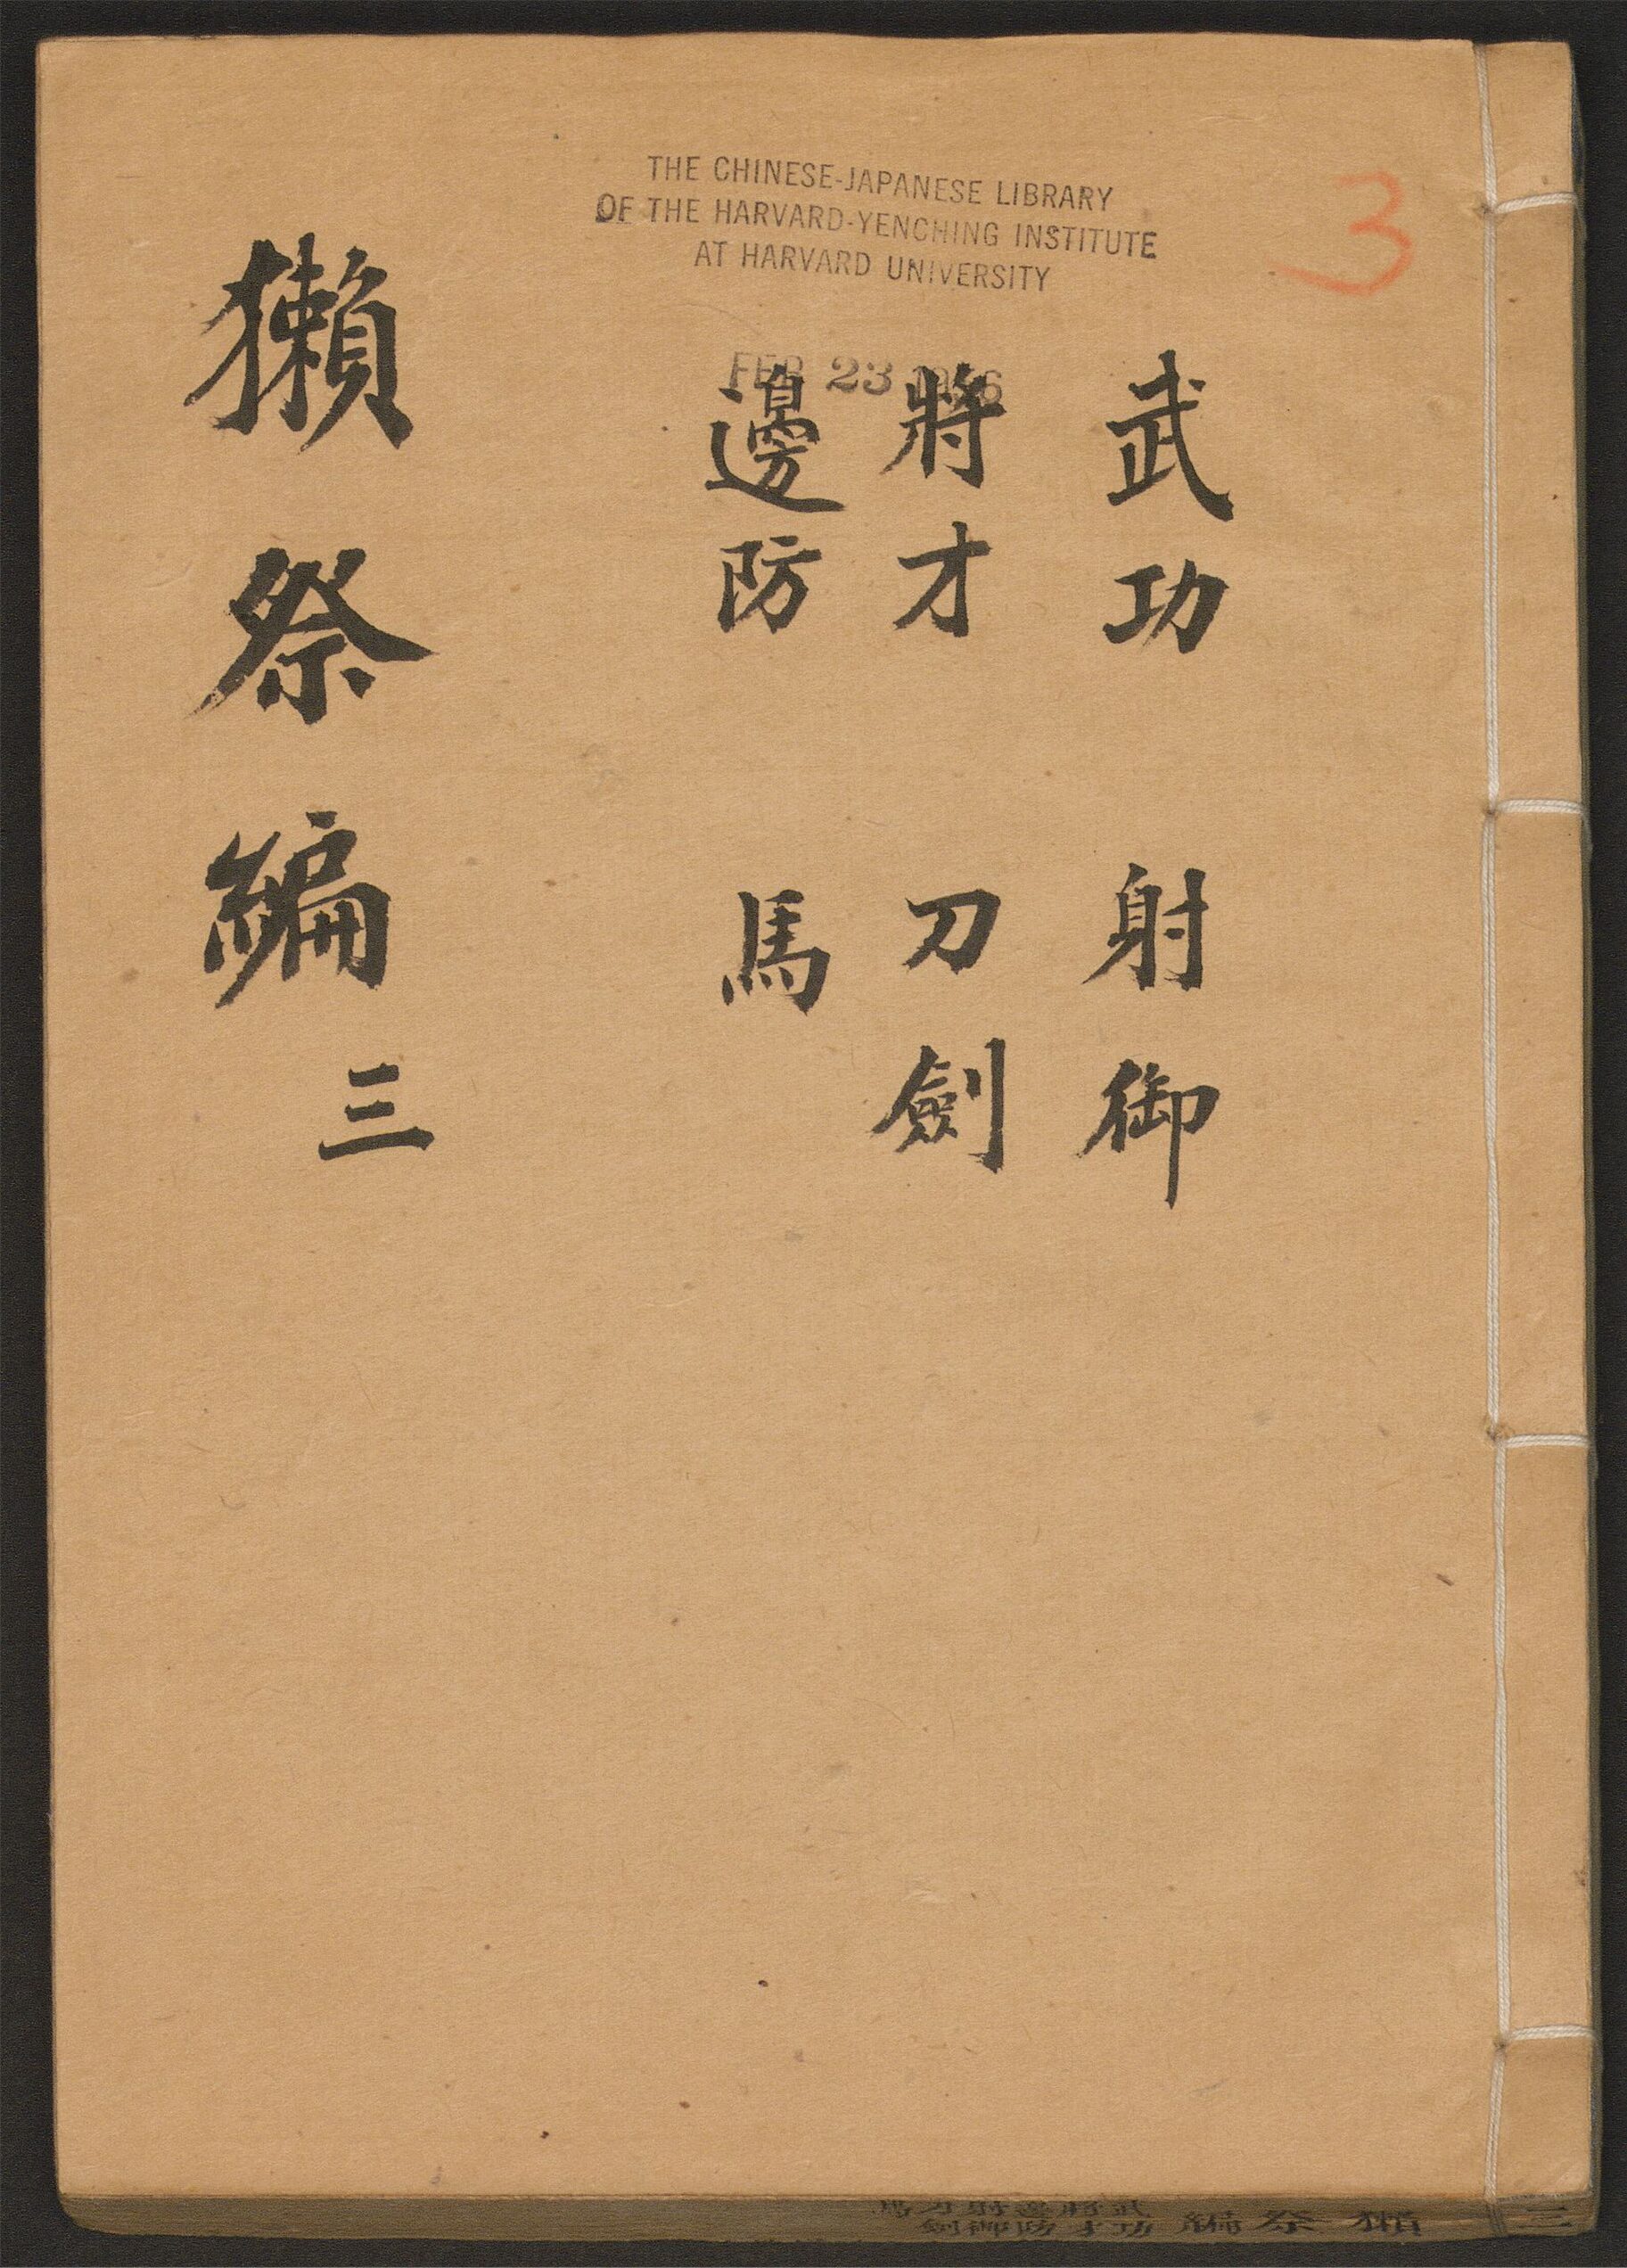 THE CHINESE-JAPANESE LIBRARY
OF THE HARVARD-YENCHING INSTITUTE
AT HARVARD UNIVERSITY
FEB 23
3
武功 射御
將才 刀劍
邊防 馬
獺祭編 三
獺祭編 三